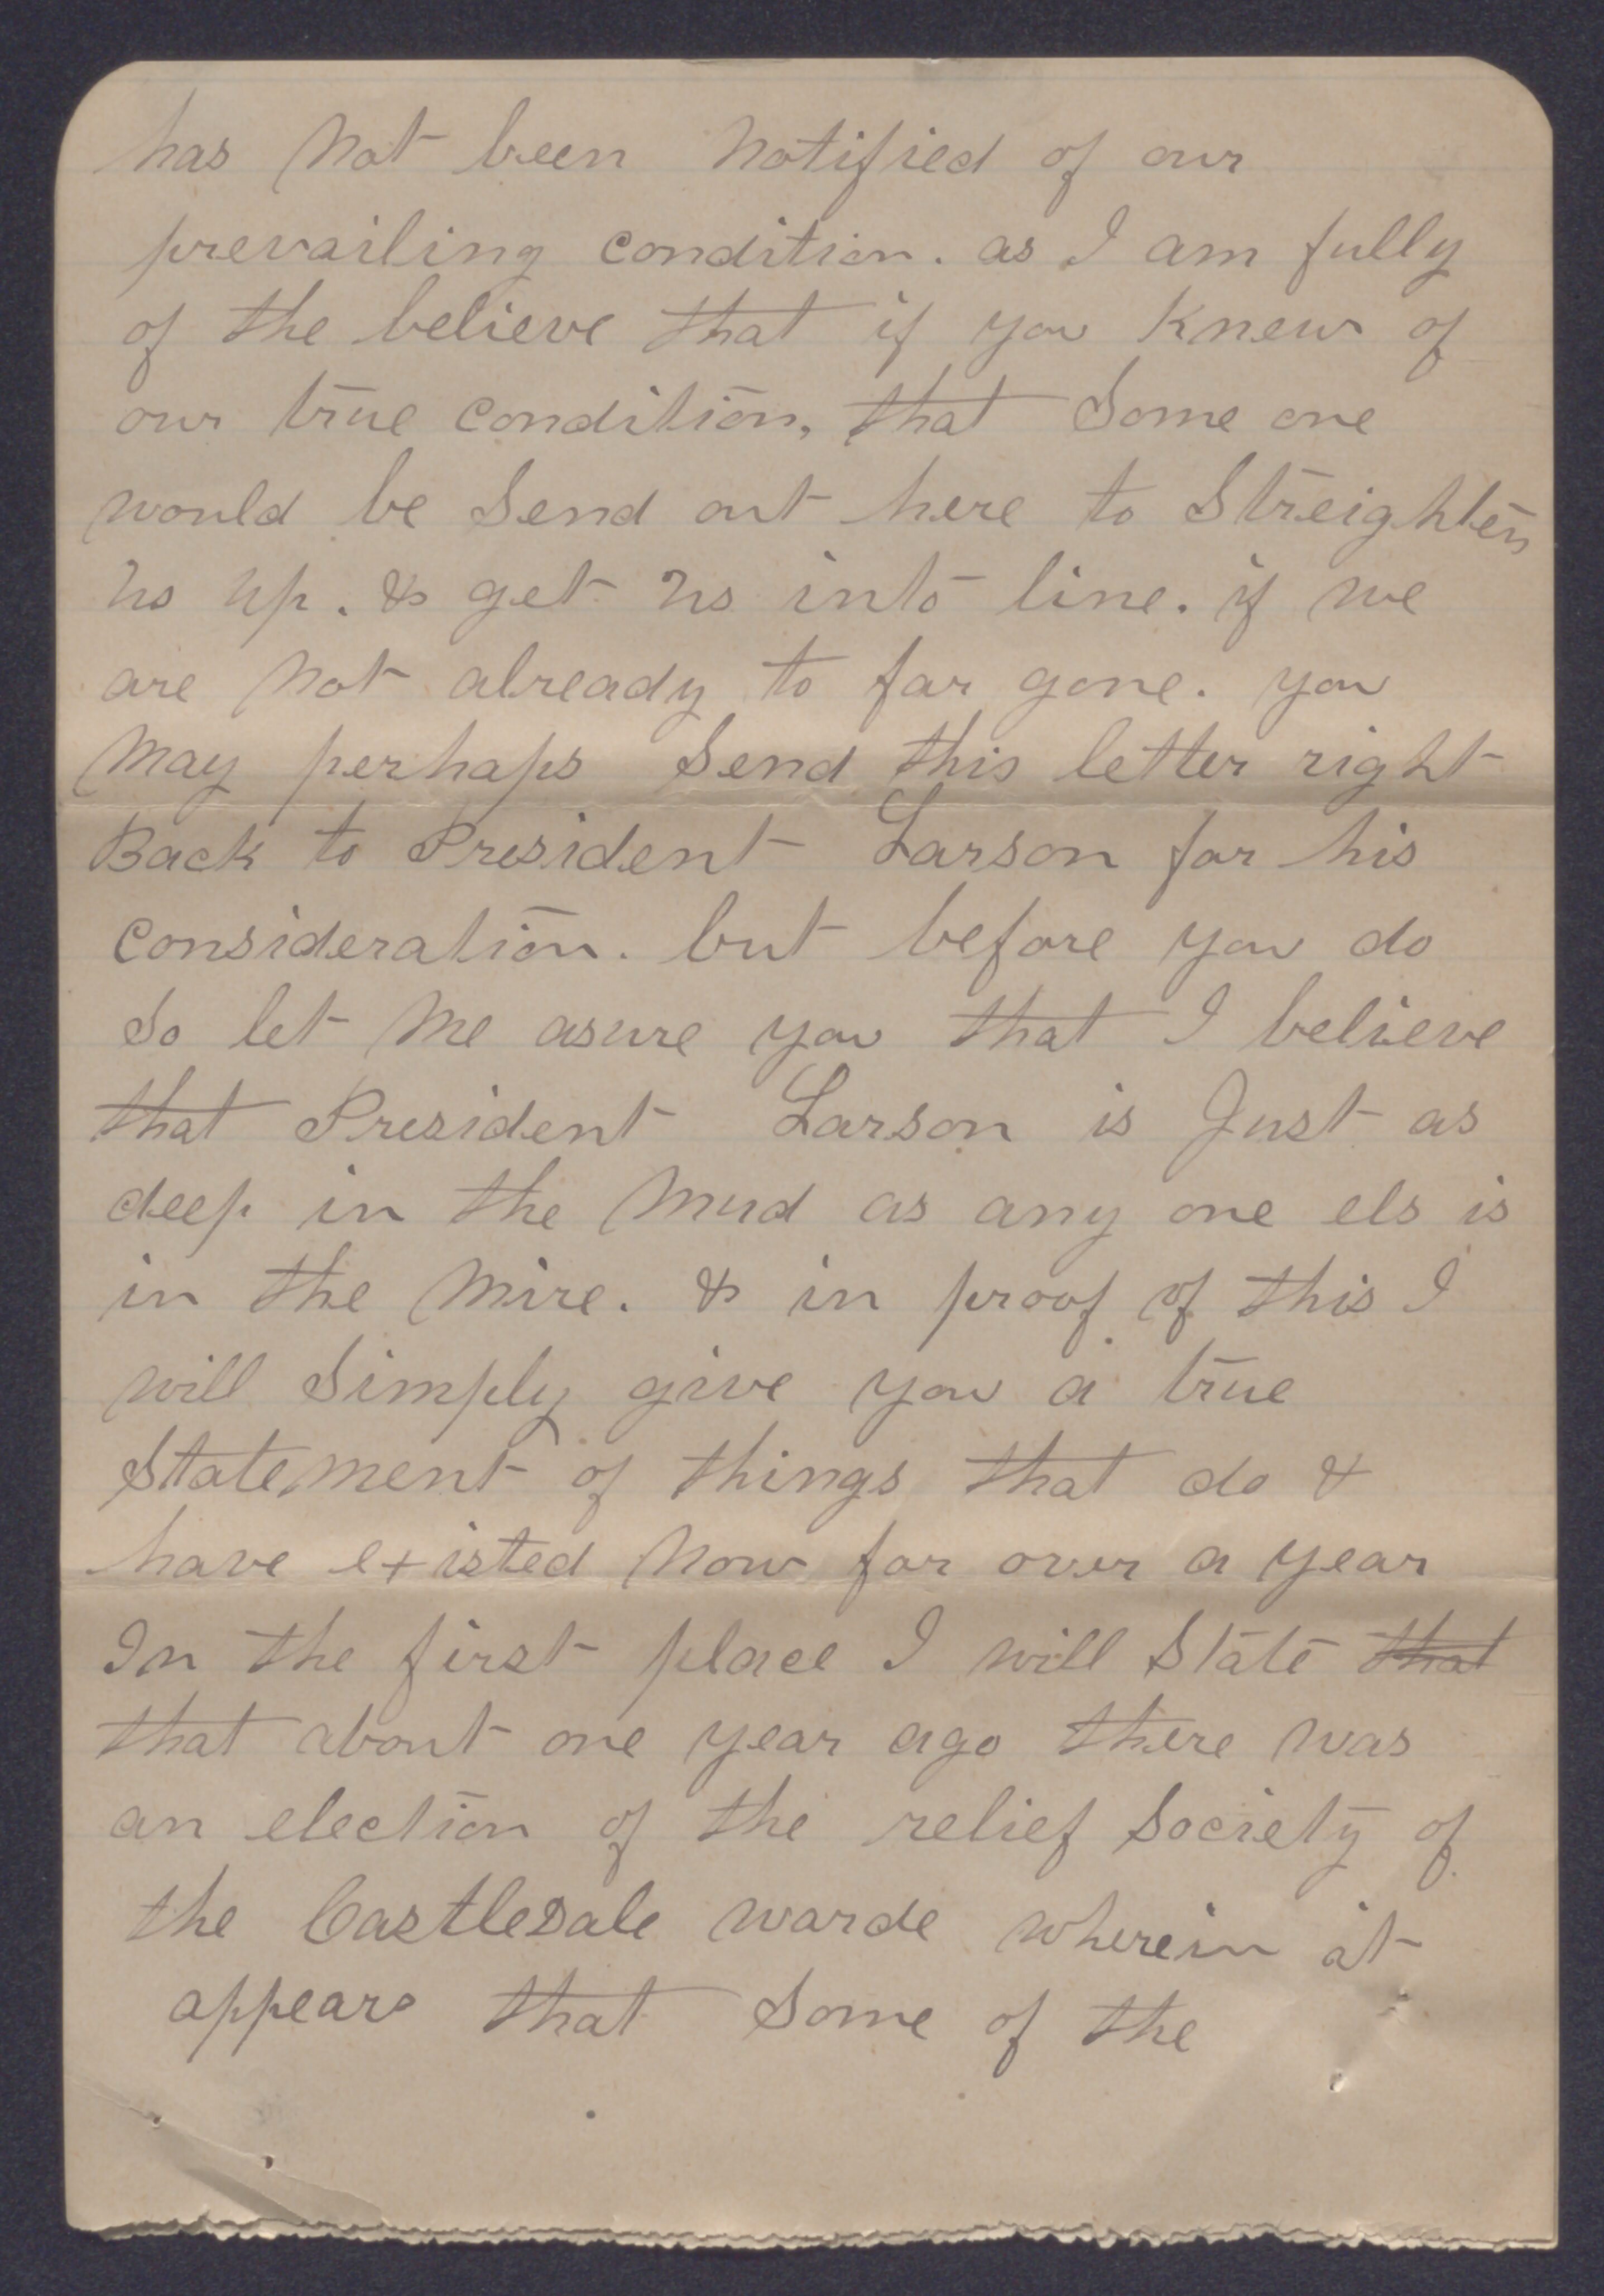 has Not been Notified of our
prevailing condition. as I am fully
of the believe that if you Knew of
our true condition, that Some one
would be Send out here to Streighten
us up. & get us into line. if we
are Not already to far gone. you
May perhaps Send this letter right
Back to President Larson for his
consideration. but before you do
So let Me asure you that I believe
that President Larson is Just as
deep in the Mud as any one els is
in the Mire. & in proof of this I
will Simply give you a true
Statement of things that do &
have existed Now for over a year
In the first place I will State that
that about one year ago there was
an election of the relief Society of
the Castledale warde wherein it
appears that Some of the